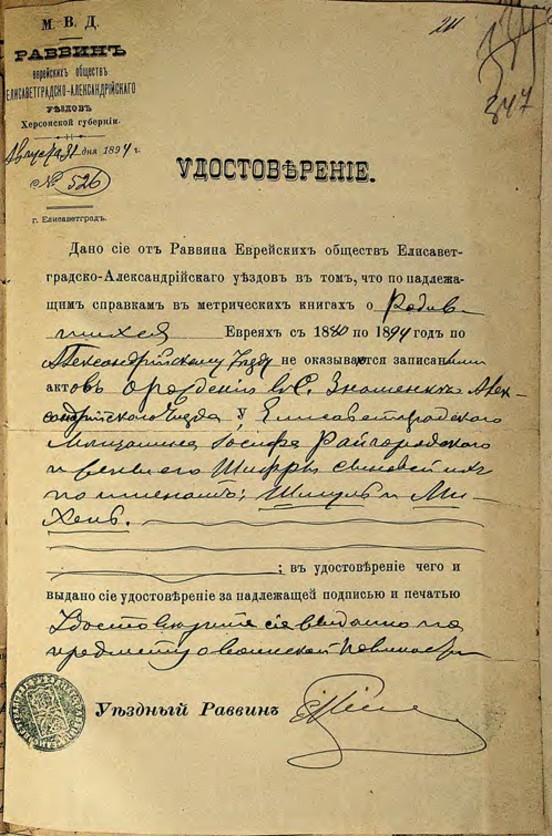 М. В. Д.
РАВВИНЪ
еврейскихъ обществъ
ЕЛИСАВЕТГРАДСКО-АЛЕКСАНДРІЙСКАГО
УѢЗДОВЪ
Херсонской губерніи.
Августа 31 дня 1894 г.
№ 526
г. Елисаветградъ.
211
347
УДОСТОВѢРЕНІЕ.
Дано сіе отъ Раввина Еврейскихъ обществъ Елисавет-
градско-Александрійскаго уѣздовъ въ томъ, что по надлежа-
щимъ справкамъ въ метрическихъ книгахъ о Родив-
шихся Евреяхъ съ 1880 по 1894 годъ по
Александрійскому Уезду не оказываются записанными
актовъ о рожденіи въ с. Знаменкѣ Алек-
сандрійскаго Уезда у Елисаветградскаго
Мещанина Іосифа Райгородскаго
и жены его Шифры сыновей ихъ
по именамъ: Шмуль и Ми-
хель.
; въ удостовѣреніе чего и
выдано сіе удостовѣреніе за надлежащей подписью и печатью
Удостовереніе сіе выдано на
предметъ о воинской повинности
Уѣздный Раввинъ